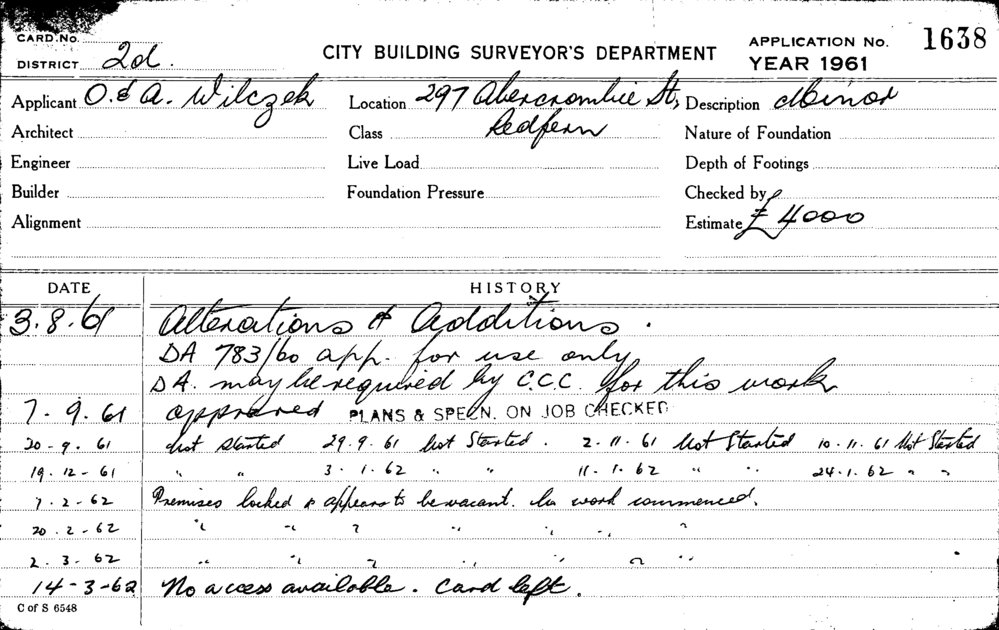 CARD. No.
DISTRICT 2d.
CITY BUILDING SURVEYOR'S DEPARTMENT
APPLICATION No. 1638
YEAR 1961
Applicant O. & A. Wilczek Location 297 Abercrombie St, Description Minor
Architect Class Redfern Nature of Foundation
Engineer Live Load Depth of Footings
Builder Foundation Pressure Checked by
Alignment Estimate £ 4000
DATE HISTORY
3.8.61 Alterations & Additions.
DA 783/60 app. for use only
DA. may be required by C.C.C. for this work
7.9.61 approved PLANS & SPECN. ON JOB CHECKED
20-9.61 Not Started 29.9.61 Not Started. 2.11.61 Not Started 10.11.61 Not Started
19.12-61 " " 3.1.62 " " 11-1.62 " " 24.1.62 " "
7.2-62 Premises locked & appears to be vacant. No work commenced.
20.2-62 " " " " " "
2.3.62 " " " " " "
14-3-62 No access available. Card left.
C of S 6548